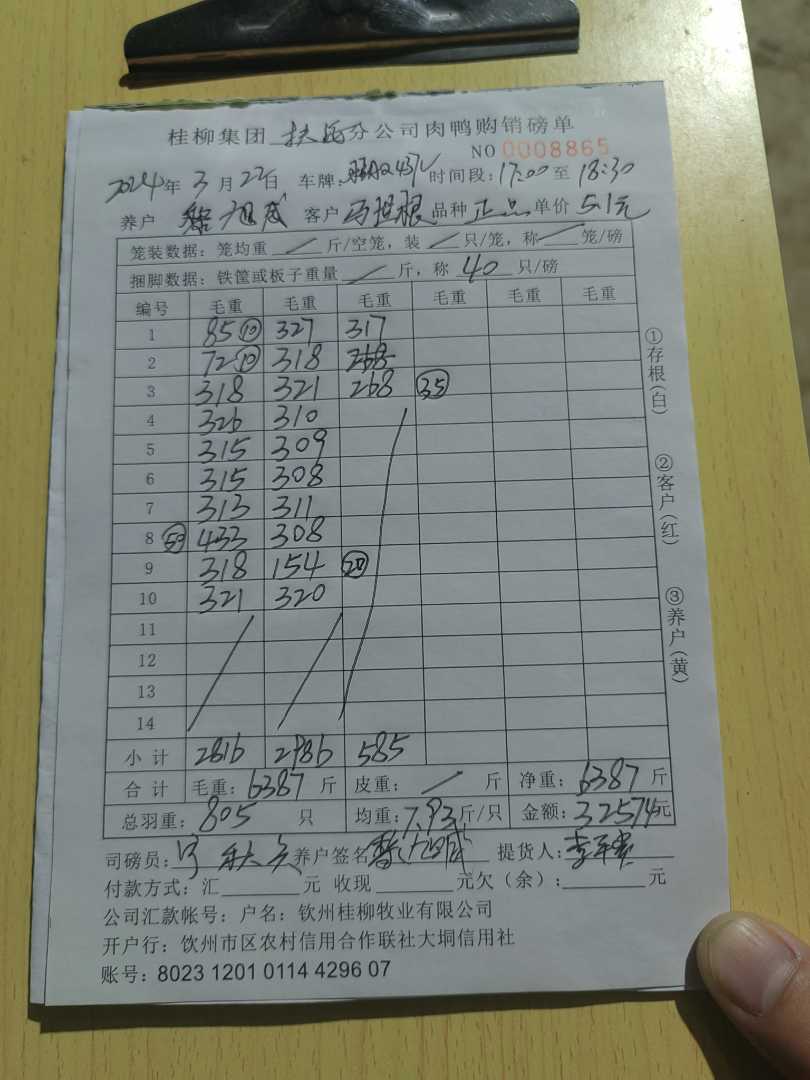 桂柳集团 分公司肉鸭购销磅单
NO 0008865
2024年3月22日 车牌: 时间段:17:00至18:30
养户 旭成 客户 冯坦根 品种 正品 单价 5.1元
笼装数据: 笼均重 / 斤/空笼, 装 / 只/笼, 称 / 笼/磅
捆脚数据: 铁筐或板子重量 / 斤, 称 40 只/磅
编号 毛重 毛重 毛重 毛重 毛重 毛重
1 85⑩ 327 317
2 72⑩ 318 268
3 318 321 268 ㉟
4 326 310
5 315 309
6 315 308
7 313 311
8 ㊿ 433 308
9 318 154 ⑳
10 321 320
11
12
13
14
小计 2816 2986 585
合计 毛重: 6387 斤 皮重: / 斤 净重: 6387 斤
总羽重: 805 只 均重: 7.93斤/只 金额: 32574元
司磅员: 养户签名 旭成 提货人:
付款方式: 汇 元 收现 元欠(余): 元
公司汇款帐号: 户名: 钦州桂柳牧业有限公司
开户行: 饮州市区农村信用合作联社大垌信用社
账号: 8023 1201 0114 4296 07
①存根(白)
②客户(红)
③养户(黄)